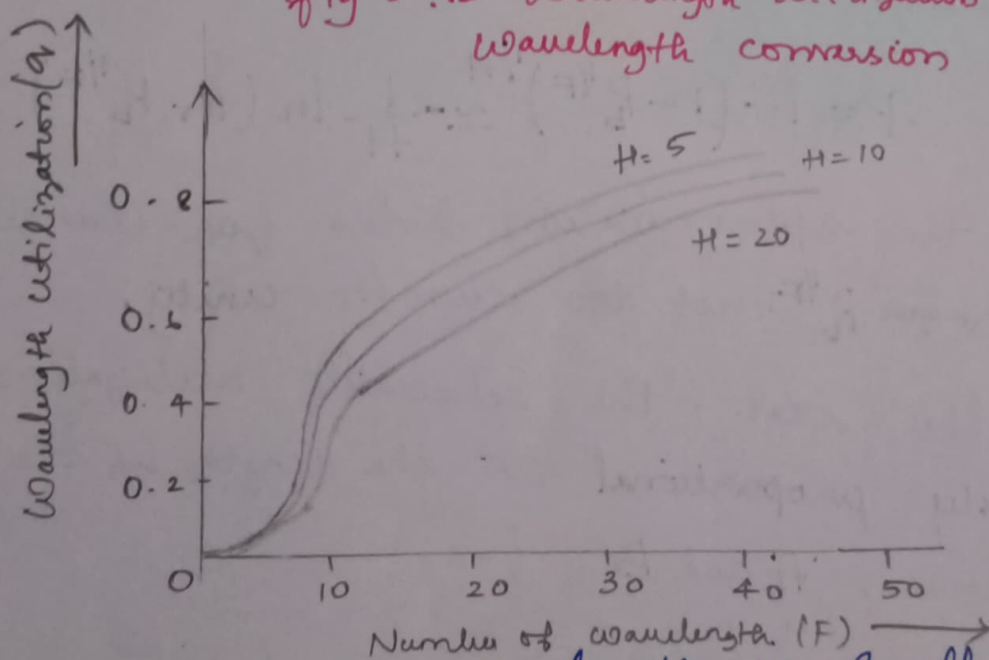 wavelength conversion
Wavelength utilization (q)
H = 5
H = 10
H = 20
0.8
0.6
0.4
0.2
0
10 20 30 40 50
Number of wavelength (F)